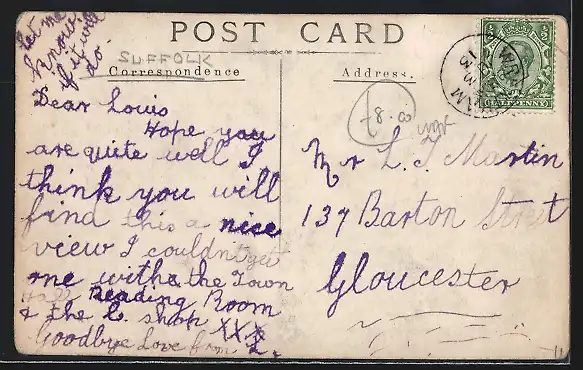 POST CARD
SUFFOLK
Correspondence
Address.
let me
know
if it will
do.
Dear Louis
Hope you
are quite well I
think you will
find this a nice
view I couldn't get
one with the Town
Hall Reading Room
& the C. shop XXX
Goodbye Love from L.
Mr L. J. Martin
137 Barton Street
Gloucester
HALFPENNY